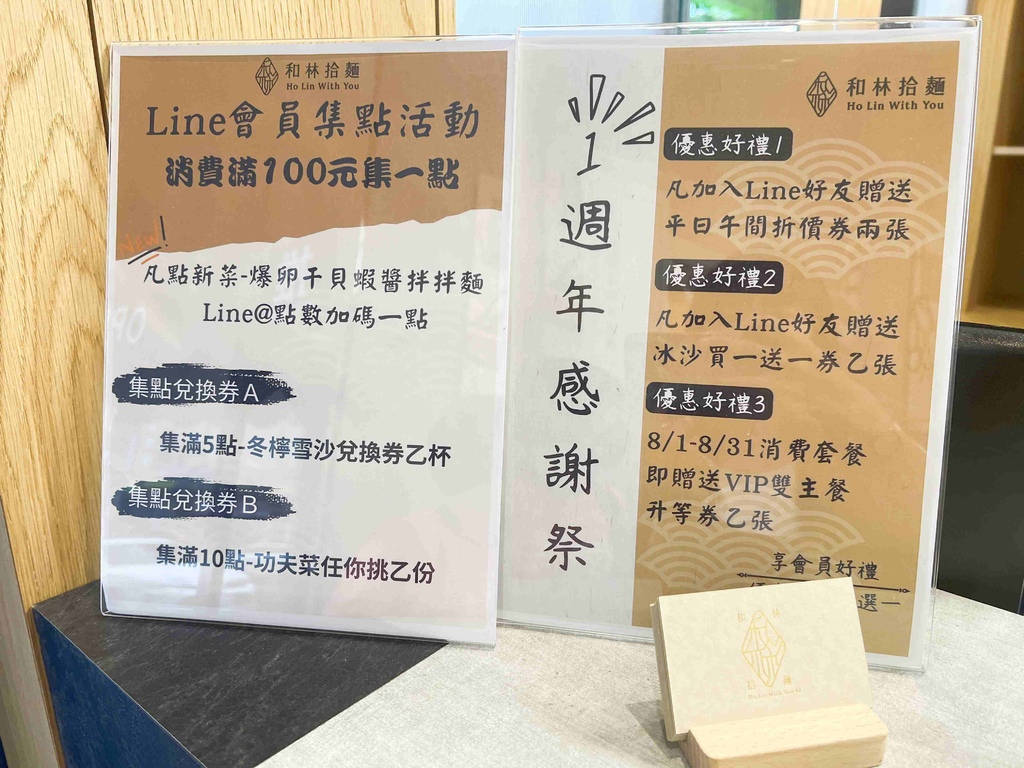 和林拾麵
Ho Lin With You
Line會員集點活動
消費滿100元集一點
凡點新菜-爆卵干貝蝦醬拌拌麵
Line@點數加碼一點
集點兌換券A
集滿5點-冬檸雪沙兌換券乙杯
集點兌換券B
集滿10點-功夫菜任你挑乙份
1週年感謝祭
和林拾麵
Ho Lin With You
優惠好禮1
凡加入Line好友贈送
平日午間折價券兩張
優惠好禮2
凡加入Line好友贈送
冰沙買一送一券乙張
優惠好禮3
8/1-8/31消費套餐
即贈送VIP雙主餐
升等券乙張
享會員好禮
選一
和林
拾麵
Ho Lin With You